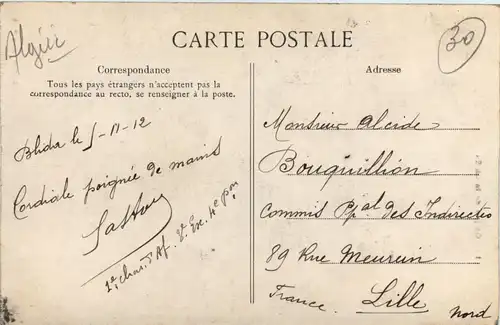 Algérie
30
CARTE POSTALE
Correspondance
Tous les pays étrangers n'acceptent pas la
correspondance au recto, se renseigner à la poste.
Blida le 5-11-12
Cordiale poignée de mains
1er chas. d'Af. 3e Ex. 4e pon
Adresse
Monsieur Alcide
Bouquillion
Commis Ppal des Indirectes
89 Rue Meurein
Lille
France.
Nord